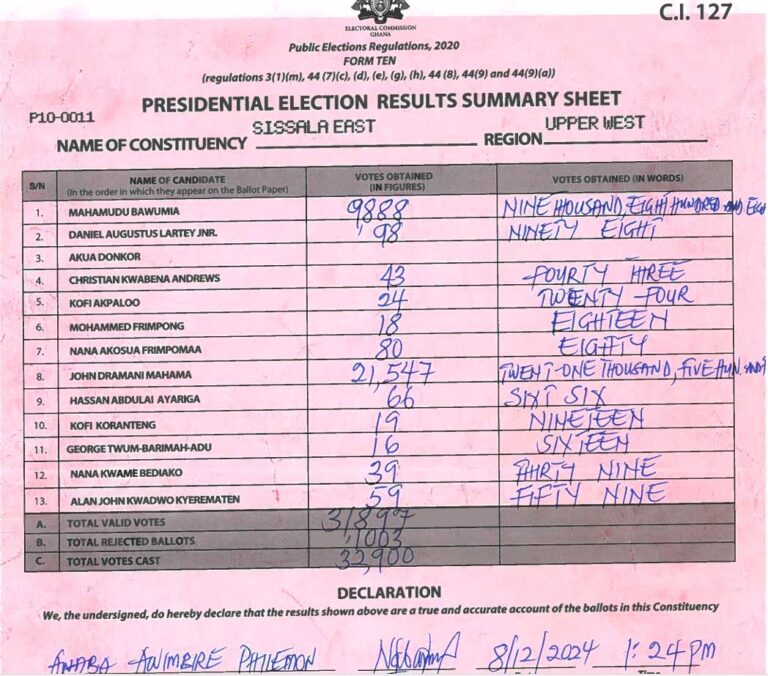 C.I. 127
ELECTORAL COMMISSION
GHANA
Public Elections Regulations, 2020
FORM TEN
(regulations 3(1)(m), 44 (7)(c), (d), (e), (g), (h), 44 (8), 44(9) and 44(9)(a))
PRESIDENTIAL ELECTION RESULTS SUMMARY SHEET
P10-0011
NAME OF CONSTITUENCY SISSALA EAST REGION UPPER WEST
S/N NAME OF CANDIDATE (In the order in which they appear on the Ballot Paper) VOTES OBTAINED (IN FIGURES) VOTES OBTAINED (IN WORDS)
1. MAHAMUDU BAWUMIA 9888 NINE THOUSAND, EIGHT HUNDRED AND EIGH
2. DANIEL AUGUSTUS LARTEY JNR. 98 NINETY EIGHT
3. AKUA DONKOR
4. CHRISTIAN KWABENA ANDREWS 43 FOURTY THREE
5. KOFI AKPALOO 24 TWENTY FOUR
6. MOHAMMED FRIMPONG 18 EIGHTEEN
7. NANA AKOSUA FRIMPOMAA 80 EIGHTY
8. JOHN DRAMANI MAHAMA 21,547 TWENT-ONE THOUSAND, FIVE HUN. AND
9. HASSAN ABDULAI AYARIGA 66 SIXT SIX
10. KOFI KORANTENG 19 NINETEEN
11. GEORGE TWUM-BARIMAH-ADU 16 SIXTEEN
12. NANA KWAME BEDIAKO 39 THIRTY NINE
13. ALAN JOHN KWADWO KYEREMATEN 59 FIFTY NINE
A. TOTAL VALID VOTES 31897
B. TOTAL REJECTED BALLOTS 1003
C. TOTAL VOTES CAST 32,900
DECLARATION
We, the undersigned, do hereby declare that the results shown above are a true and accurate account of the ballots in this Constituency
ANABA AWIMBIRE PHILEMON 8/12/2024 1:24PM